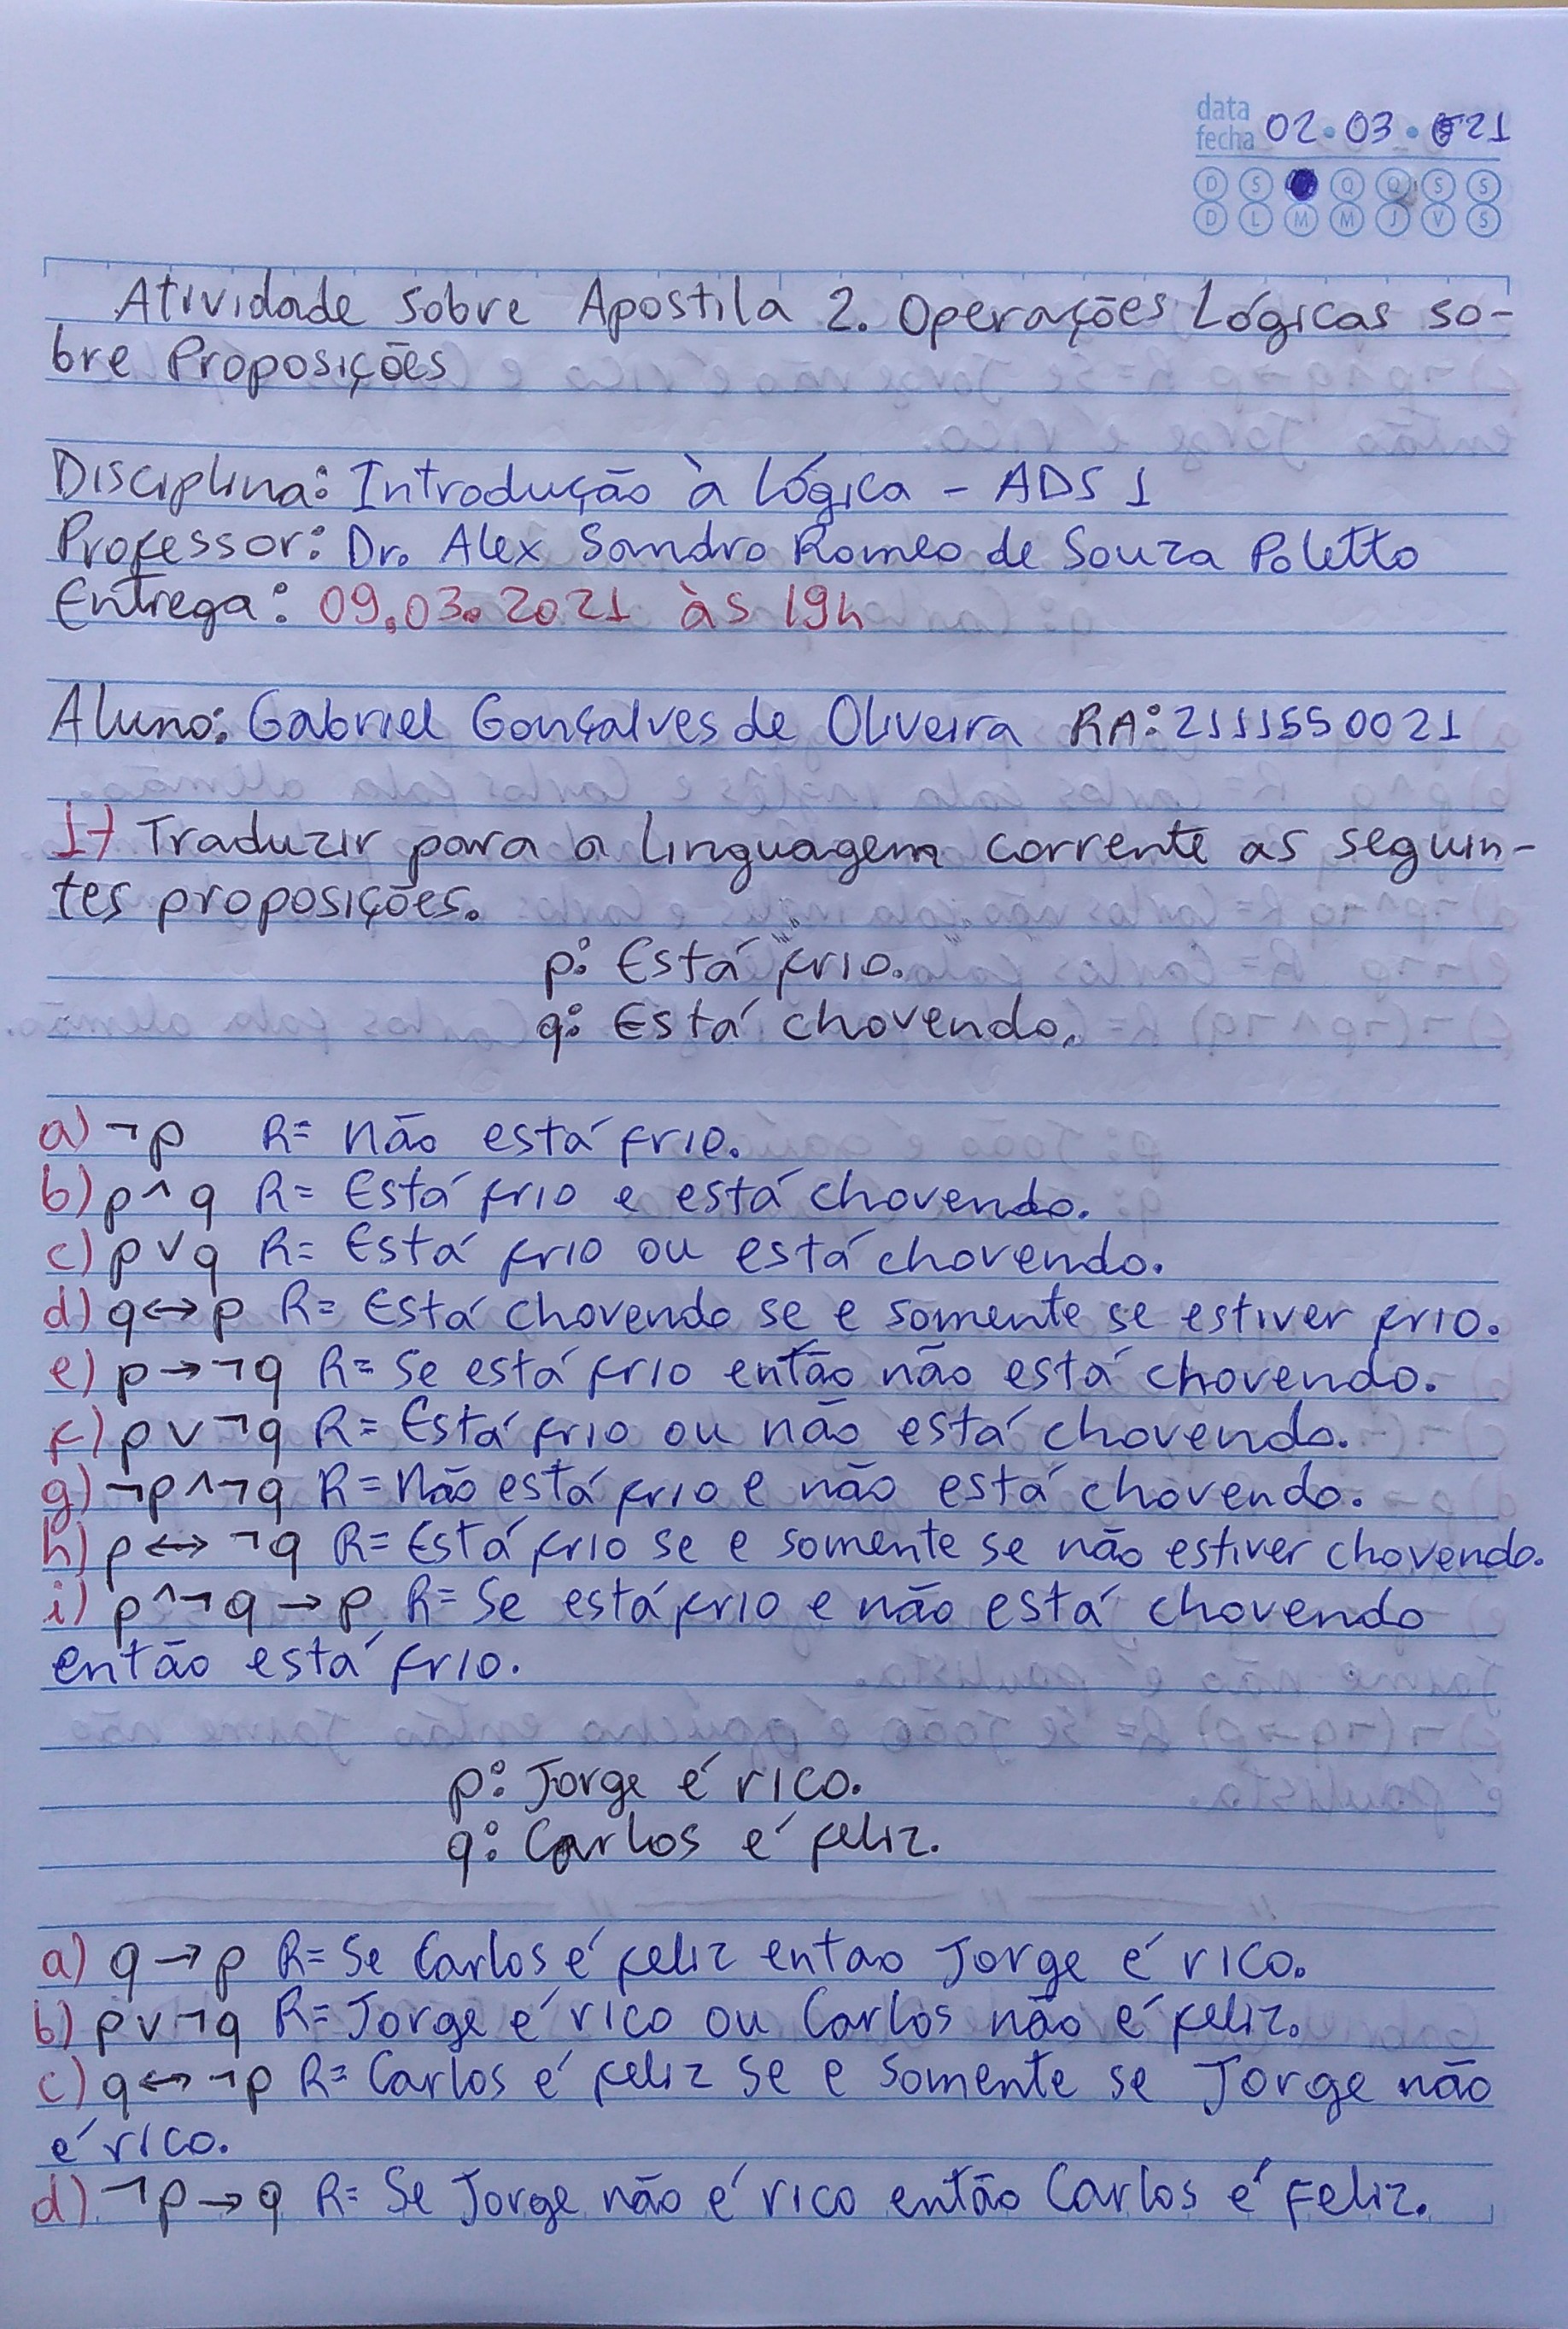 data
fecha 02.03.21
D S Q Q S S
D L M M J V S
Atividade sobre Apostila 2. Operações Lógicas so-
bre Proposições
Disciplina: Introdução à Lógica - ADS 1
Professor: Dr. Alex Sandro Romeo de Souza Poletto
Entrega: 09.03.2021 às 19h
Aluno: Gabriel Gonçalves de Oliveira RA: 2111550021
1-) Traduzir para a linguagem corrente as seguin-
tes proposições.
p: Está frio.
q: Está chovendo.
a) ¬p R= Não está frio.
b) p ^ q R= Está frio e está chovendo.
c) p v q R= Está frio ou está chovendo.
d) q ↔ p R= Está chovendo se e somente se estiver frio.
e) p → ¬q R= Se está frio então não está chovendo.
f) p v ¬q R= Está frio ou não está chovendo.
g) ¬p ^ ¬q R= Não está frio e não está chovendo.
h) p ↔ ¬q R= Está frio se e somente se não estiver chovendo.
i) p ^ ¬q → p R= Se está frio e não está chovendo
então está frio.
p: Jorge é rico.
q: Carlos é feliz.
a) q → p R= Se Carlos é feliz entao Jorge é rico.
b) p v ¬q R= Jorge é rico ou Carlos não é feliz.
c) q ↔ ¬p R= Carlos é feliz se e somente se Jorge não
é rico.
d) ¬p → q R= Se Jorge não é rico então Carlos é feliz.